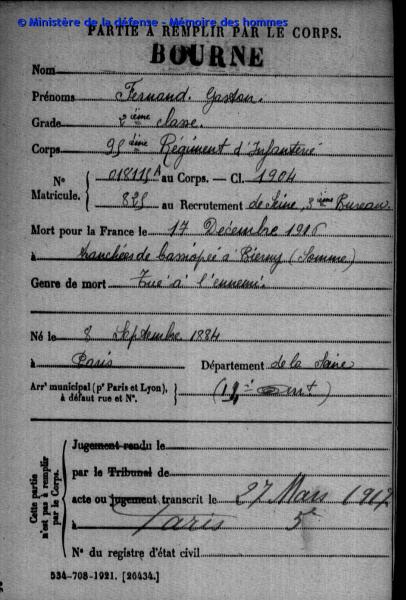 © Ministère de la défense - Mémoire des hommes
PARTIE À REMPLIR PAR LE CORPS.
BOURNE
Nom
Prénoms Fernand Gaston.
Grade 2ième classe.
Corps 95ième Régiment d'Infanterie
N° Matricule. 018115A au Corps. — Cl. 1904
825 au Recrutement de Seine, 3ième Bureau
Mort pour la France le 17 Décembre 1916
à tranchées de Cassiopée à Bierny (Somme)
Genre de mort Tué à l'ennemi.
Né le 8 Septembre 1884
à Paris Département de la Seine
Arr' municipal (p' Paris et Lyon), à défaut rue et N°.
Cette partie n'est pas à remplir par le Corps.
Jugement rendu le
par le Tribunal de
acte ou jugement transcrit le 27 Mars 1917
à Paris 5e
N° du registre d'état civil
534-708-1921. [26434.]